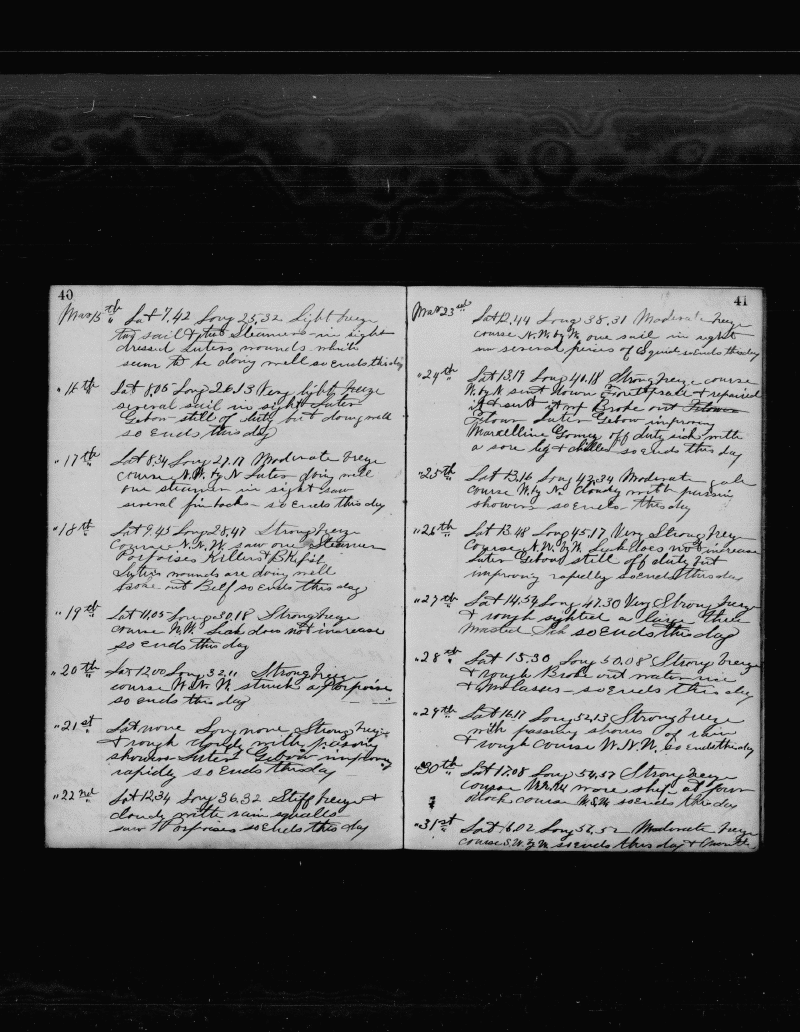 40
Mar 15th Lat 7.42 Long 25,32 Light breeze
two sail & two Steamers in sight
dressed Luters wounds which
seem to be doing well so ends this day
" 16th Lat 8,05 Long 26.13 Very light breeze
several sail in sight Luter
Gebow still off duty but doing well
so ends this day
" 17th Lat 8.34 Long 27.17 Moderate breze
course N.W. by N Luter doing well
one steamer in sight saw
several finbacks so ends this day
" 18th Lat 9.45 Long 28,47 Strong breeze
Course N.N.W. saw one Steamer
Porpoises Killers & Bkfish
Luters wounds are doing well
Broke out Beef so ends this day
" 19th Lat 11.05 Long 30.18 Strong breeze
course N.W. Leak does not increase
so ends this day
" 20th Lat 12.00 Long 32,11 Strong breeze
course W.N.W. struck a porpoise
so ends this day
" 21st Lat none Long none Strong breeze
& rough cloudy with passing
showers Luter Gebow improving
rapidly so ends this day
" 22nd Lat 12.34 Long 36.32 Stiff breeze &
cloudy with rain squalls
saw Porpoises so ends this day
41
Mar 23rd Lat 12.44 Long 38.31 Moderate breeze
course N.W. by W. one sail in sight
saw several peices of Squid so ends this day
" 24th Lat 13.19 Long 40.18 Strong breeze course
W. by N sent down Foretopsail & repaired
it & sent it up Broke out
Flour Luter Gebow improving
Marcelline Gomez off duty sick with
a sore leg & chills so ends this day
" 25th Lat 13.16 Long 42,34 Moderate gale
course W. by N. Cloudy with passing
showers so ends this day
" 26th Lat 13.48 Long 45.17 Very Strong breeze
Course N.W. by W. Leak does not increase
Luter Gebow still off duty but
improving rapidly so ends this day
" 27th Lat 14.54 Long 47.30 Very Strong breeze
& rough sighted a large three
masted Sch so ends this day
" 28th Lat 15.30 Long 50.08 Strong breeze
& rough Broke out water rice
& molasses so ends this day
" 29th Lat 16.17 Long 52,13 Strong breeze
with passing shours of rain
& rough Course W.N.W. so ends this day
" 30th Lat 17.08 Long 54,57 Strong breeze
course W.N.W. wore ship at four
oclock course W.S.W so ends this day
" 31st Lat 16.02 Long 56,52 Moderate breeze
course S.W. by W. so ends this day & Month